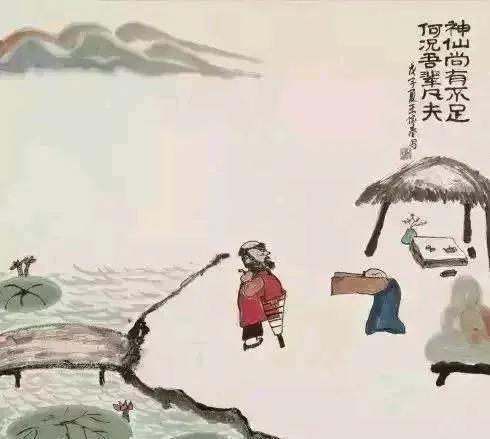 神仙尚有不足
何况吾辈凡夫
戊子夏王